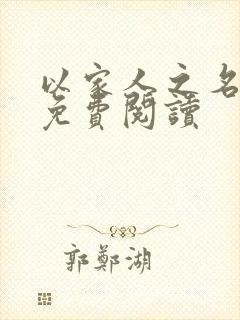 以家人之名
免費閱讀
郭鄭湖